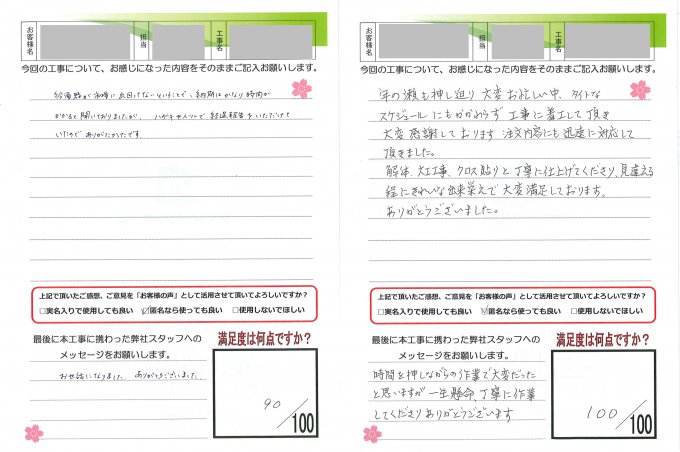 お客様名
担当
工事名
今回の工事について、お感じになった内容をそのままご記入お願いします。
給湯器が市場に出回ってないということで、納期はかなり時間が
かかると聞いておりましたが、ハガキやメールで経過報告をいただけて
いたのでありがたかったです。
上記で頂いたご感想、ご意見を「お客様の声」として活用させて頂いてよろしいですか？
□実名入りで使用しても良い ☑匿名なら使っても良い □使用しないでほしい
最後に本工事に携わった弊社スタッフへの
メッセージをお願いします。
お世話になりました。ありがとうございました。
満足度は何点ですか？
90/100
お客様名
担当
工事名
今回の工事について、お感じになった内容をそのままご記入お願いします。
年の瀬も押し迫り大変お忙しい中、タイトな
スケジュールにもかかわらず工事に着工して頂き
大変感謝しております 注文内容にも迅速に対応して
頂きました。
解体、大工工事、クロス貼りと丁寧に仕上げてくださり、見違える
程にきれいな出来栄えで大変満足しております。
ありがとうございました。
上記で頂いたご感想、ご意見を「お客様の声」として活用させて頂いてよろしいですか？
□実名入りで使用しても良い ☑匿名なら使っても良い □使用しないでほしい
最後に本工事に携わった弊社スタッフへの
メッセージをお願いします。
時間を押しながらの作業で大変だった
と思いますが一生懸命、丁寧に作業
してくださりありがとうございます
満足度は何点ですか？
100/100